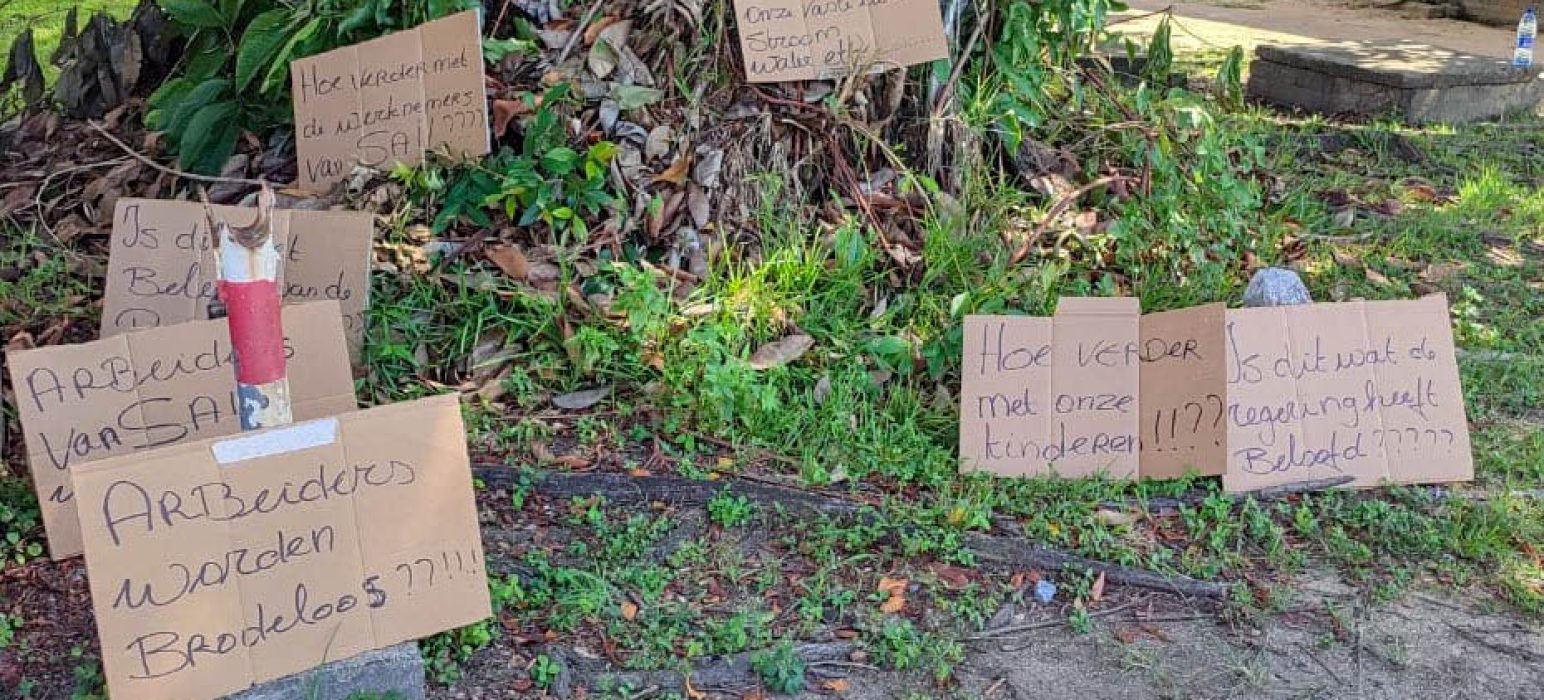 Onze vaste
Stroom
Water etc
Hoe verder met
de werknemers
van SAIL ????
Is dit het
Beleid van de
ARBeiders
van SAIL
ARBeiders
worden
Brodeloos ??!!!
Hoe VERDER
met onze
kinderen !!??
Is dit wat de
regering heeft
Beloofd ?????